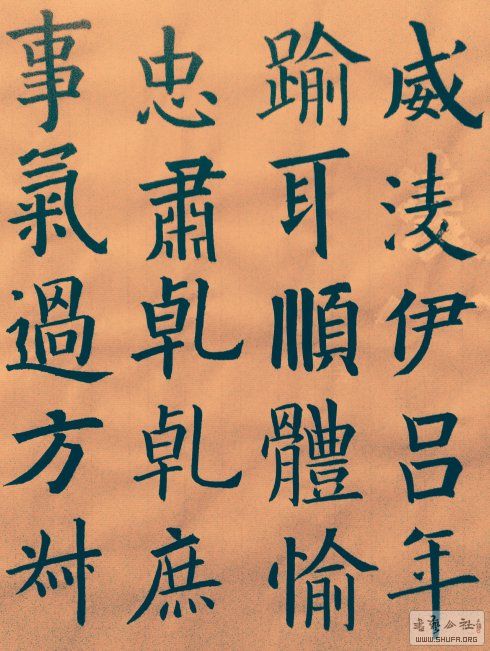 威淩伊呂年
踰耳順體愉
忠肅乹乹庶
事氣過方
書藝公社
WWW.SHUFA.ORG